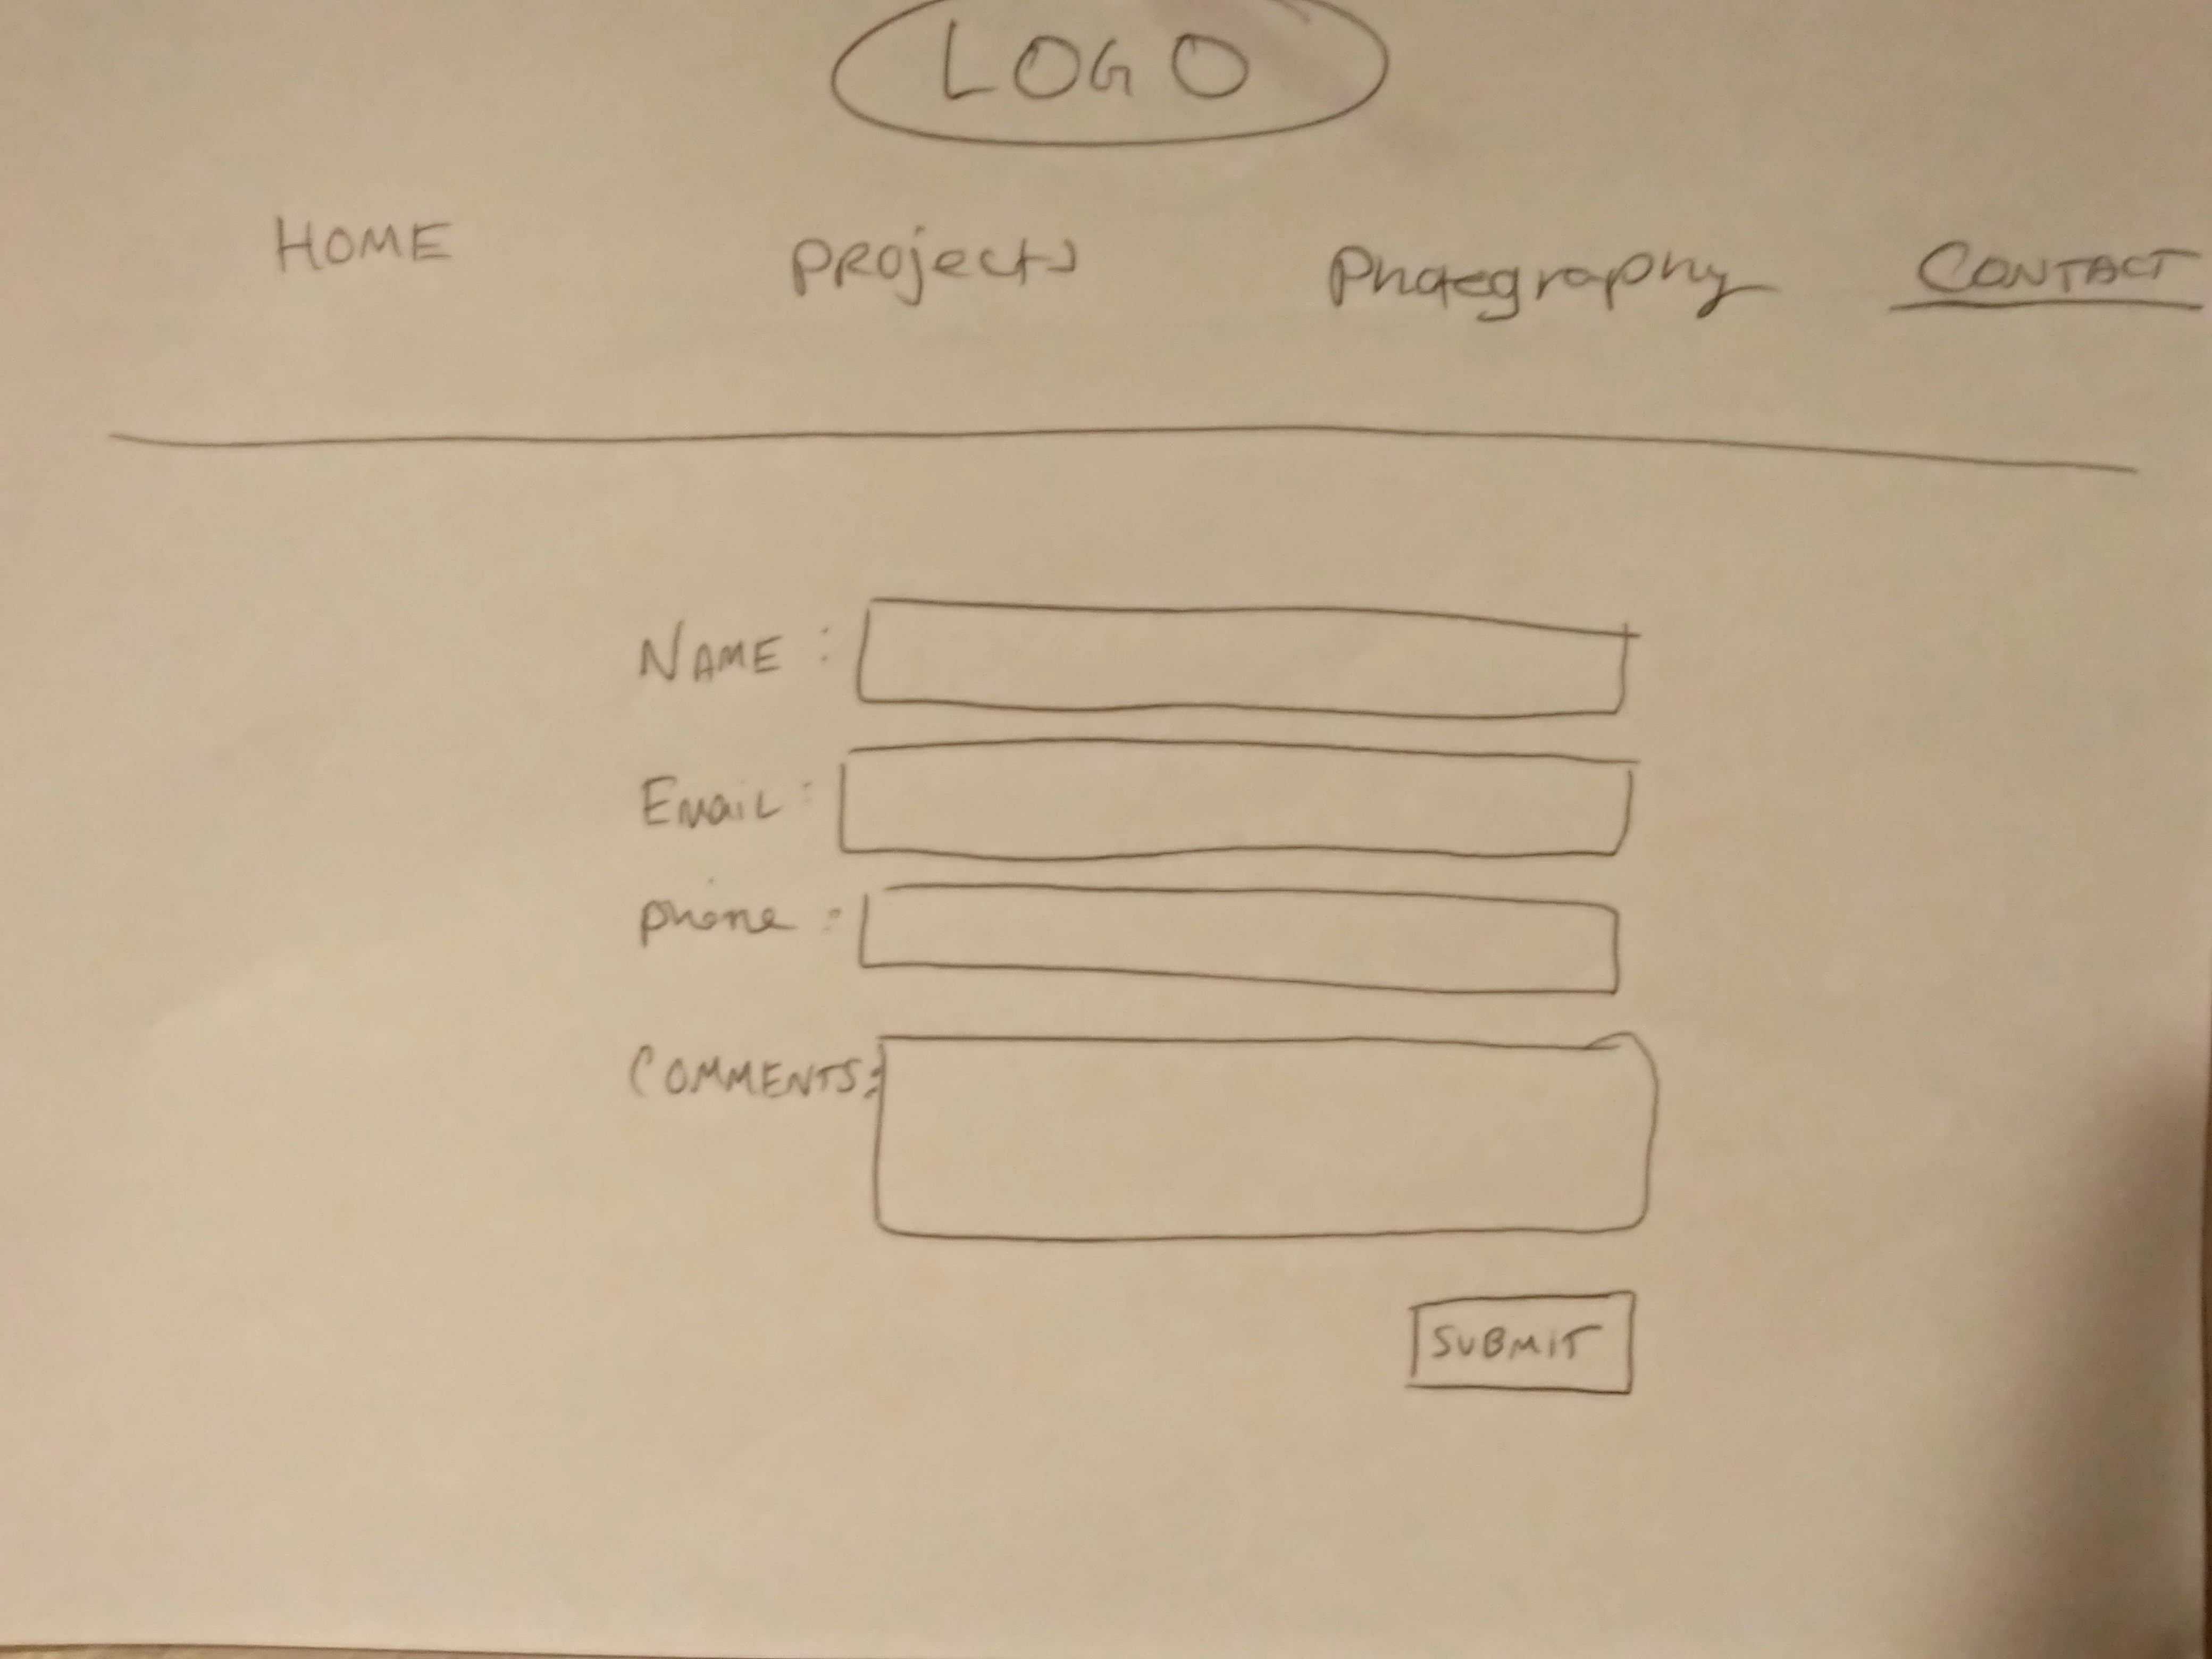 LOGO
HOME Projects Photography CONTACT
NAME :
Email :
phone :
COMMENTS:
SUBMIT